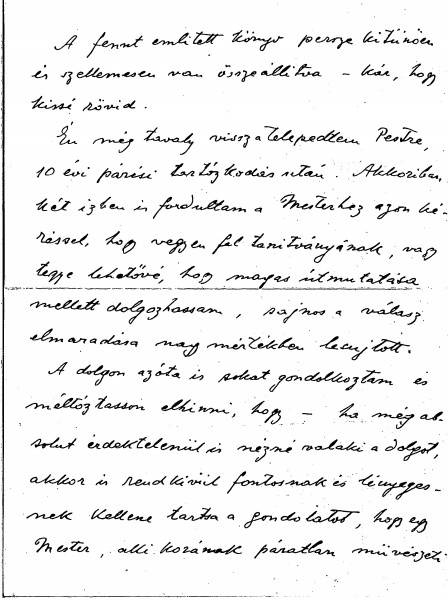 A fennt emlitett könyv persze kitünően
és szellemesen van összeállitva – kár, hogy
kissé rövid.
Én még tavaly visszatelepedtem Pestre,
10 évi párisi tartózkodás után. Akkoriban
két izben is fordultam a Mesterhez azon ké-
réssel, hogy vegyen fel tanitványának, vagy
tegye lehetővé, hogy magas útmutatása
mellett dolgozhassam, sajnos a válasz
elmaradása nagy mértékben lesujtott.
A dolgon azóta is sokat gondolkoztam és
méltóztasson elhinni, hogy – ha még ab-
solut érdektelenül is nézné valaki a dolgot,
akkor is rendkivül fontosnak és lényeges-
nek kellene tartsa a gondolatot, hogy egy
Mester, aki korának páratlan müvészeti